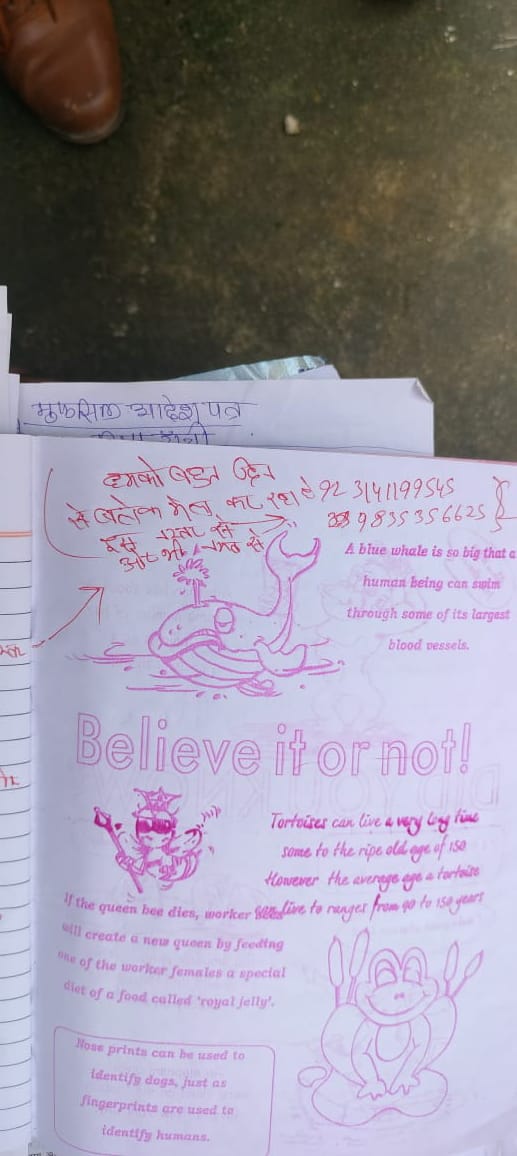 मुफसिल आदेश पत्र
हमको बहुत दिन
से बलेक मेल कर रहा है 92 3141199545
9835356625
A blue whale is so big that a
human being can swim
through some of its largest
blood vessels.
Believe it or not!
Tortoises can live a very long time
some to the ripe old age of 150
However the average age a tortoise
can live to ranges from 90 to 150 years
If the queen bee dies, worker
will create a new queen by feeding
one of the worker females a special
diet of a food called 'royal jelly'.
Nose prints can be used to
identify dogs, just as
fingerprints are used to
identify humans.